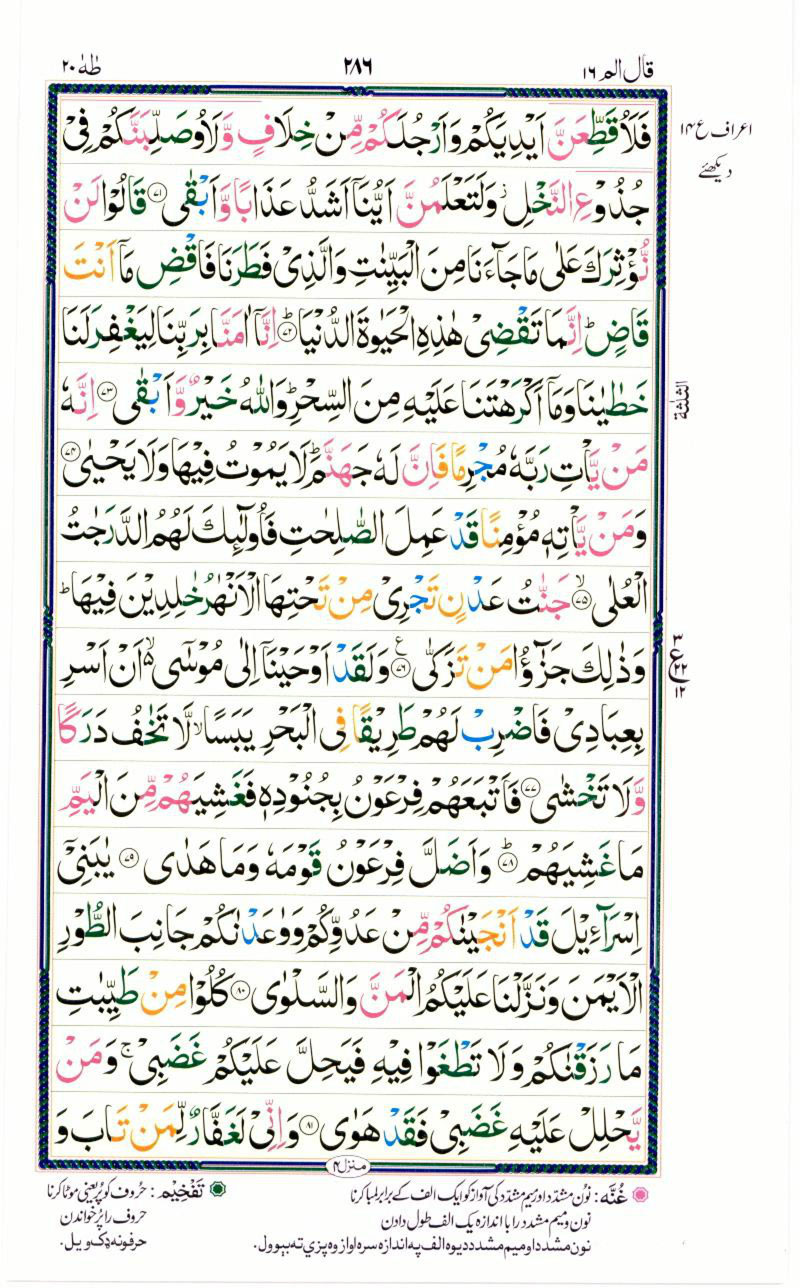 قال الم ۱۶
۲۸۶
طٰهٰ ۲۰
فَلَاُقَطِّعَنَّ اَيْدِيَكُمْ وَاَرْجُلَكُمْ مِّنْ خِلَافٍ وَّلَاُوصَلِّبَنَّكُمْ فِىْ
اعراف ع ۱۴
دیکھئے
جُذُوْعِ النَّخْلِ ز وَلَتَعْلَمُنَّ اَيُّنَاۤ اَشَدُّ عَذَابًا وَّاَبْقٰى ﴿۷۱﴾ قَالُوْا لَنْ
نُّؤْثِرَكَ عَلٰى مَا جَآءَنَا مِنَ الْبَيِّنٰتِ وَالَّذِىْ فَطَرَنَا فَاقْضِ مَاۤ اَنْتَ
قَاضٍ ؕ اِنَّمَا تَقْضِىْ هٰذِهِ الْحَيٰوةَ الدُّنْيَا ؕ ﴿۷۲﴾ اِنَّاۤ اٰمَنَّا بِرَبِّنَا لِيَغْفِرَ لَنَا
خَطٰيٰنَا وَمَاۤ اَكْرَهْتَنَا عَلَيْهِ مِنَ السِّحْرِ ؕ وَاللّٰهُ خَيْرٌ وَّاَبْقٰى ﴿۷۳﴾ اِنَّهٗ
الثلثة
مَنْ يَّاْتِ رَبَّهٗ مُجْرِمًا فَاِنَّ لَهٗ جَهَنَّمَ ؕ لَا يَمُوْتُ فِيْهَا وَلَا يَحْيٰى ﴿۷۴﴾
وَمَنْ يَّاْتِهٖ مُؤْمِنًا قَدْ عَمِلَ الصّٰلِحٰتِ فَاُولٰٓئِكَ لَهُمُ الدَّرَجٰتُ
الْعُلٰى ۙ ﴿۷۵﴾ جَنّٰتُ عَدْنٍ تَجْرِىْ مِنْ تَحْتِهَا الْاَنْهٰرُ خٰلِدِيْنَ فِيْهَا ؕ
وَذٰلِكَ جَزٰٓؤُا مَنْ تَزَكّٰى ﴿۷۶﴾ ع وَلَقَدْ اَوْحَيْنَاۤ اِلٰى مُوْسٰٓى ۙ۬ اَنْ اَسْرِ
۳
ع
۲۲
۱۲
بِعِبَادِىْ فَاضْرِبْ لَهُمْ طَرِيْقًا فِى الْبَحْرِ يَبَسًا ۙ لَّا تَخٰفُ دَرَكًا
وَّلَا تَخْشٰى ﴿۷۷﴾ فَاَتْبَعَهُمْ فِرْعَوْنُ بِجُنُوْدِهٖ فَغَشِيَهُمْ مِّنَ الْيَمِّ
مَا غَشِيَهُمْ ؕ ﴿۷۸﴾ وَاَضَلَّ فِرْعَوْنُ قَوْمَهٗ وَمَا هَدٰى ﴿۷۹﴾ يٰبَنِىْۤ
اِسْرَآءِيْلَ قَدْ اَنْجَيْنٰكُمْ مِّنْ عَدُوِّكُمْ وَوٰعَدْنٰكُمْ جَانِبَ الطُّوْرِ
الْاَيْمَنَ وَنَزَّلْنَا عَلَيْكُمُ الْمَنَّ وَالسَّلْوٰى ﴿۸۰﴾ كُلُوْا مِنْ طَيِّبٰتِ
مَا رَزَقْنٰكُمْ وَلَا تَطْغَوْا فِيْهِ فَيَحِلَّ عَلَيْكُمْ غَضَبِىْ ۚ وَمَنْ
يَّحْلِلْ عَلَيْهِ غَضَبِىْ فَقَدْ هَوٰى ﴿۸۱﴾ وَاِنِّىْ لَغَفَّارٌ لِّمَنْ تَابَ وَ
منزل ۴
غُنَّه: نون مشدّد اور میم مشدّد کی آواز کو ایک الف کے برابر لمبا کرنا
نون و میم مشدد را با اندازہ یک الف طول دادن
نون مشدد او میم مشدد دیوہ الف په اندازه سره اواز وه پزې ته بېوول.
تَفْخِيْم: حروف کو پُر یعنی موٹا کرنا
حروف را پُر خواندن
حرفونه ډک ویل.